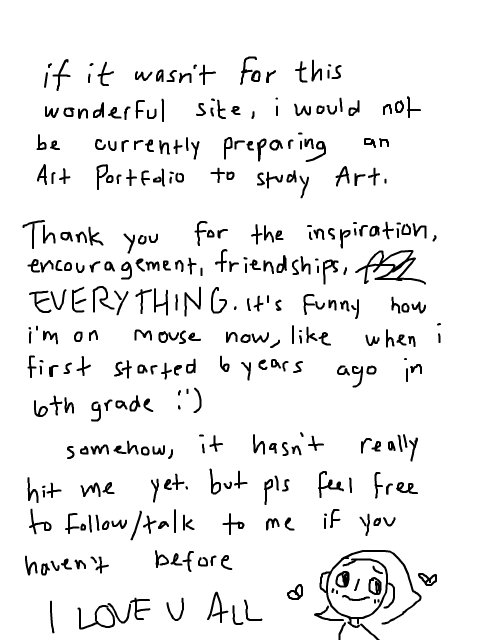 if it wasn't for this
wonderful site, i would not
be currently preparing an
Art Portfolio to study Art.
Thank you for the inspiration,
encouragement, friendships,
EVERYTHING. it's funny how
i'm on mouse now, like when i
first started 6 years ago in
6th grade :')
somehow, it hasn't really
hit me yet. but pls feel free
to follow/talk to me if you
haven't before
I LOVE U ALL